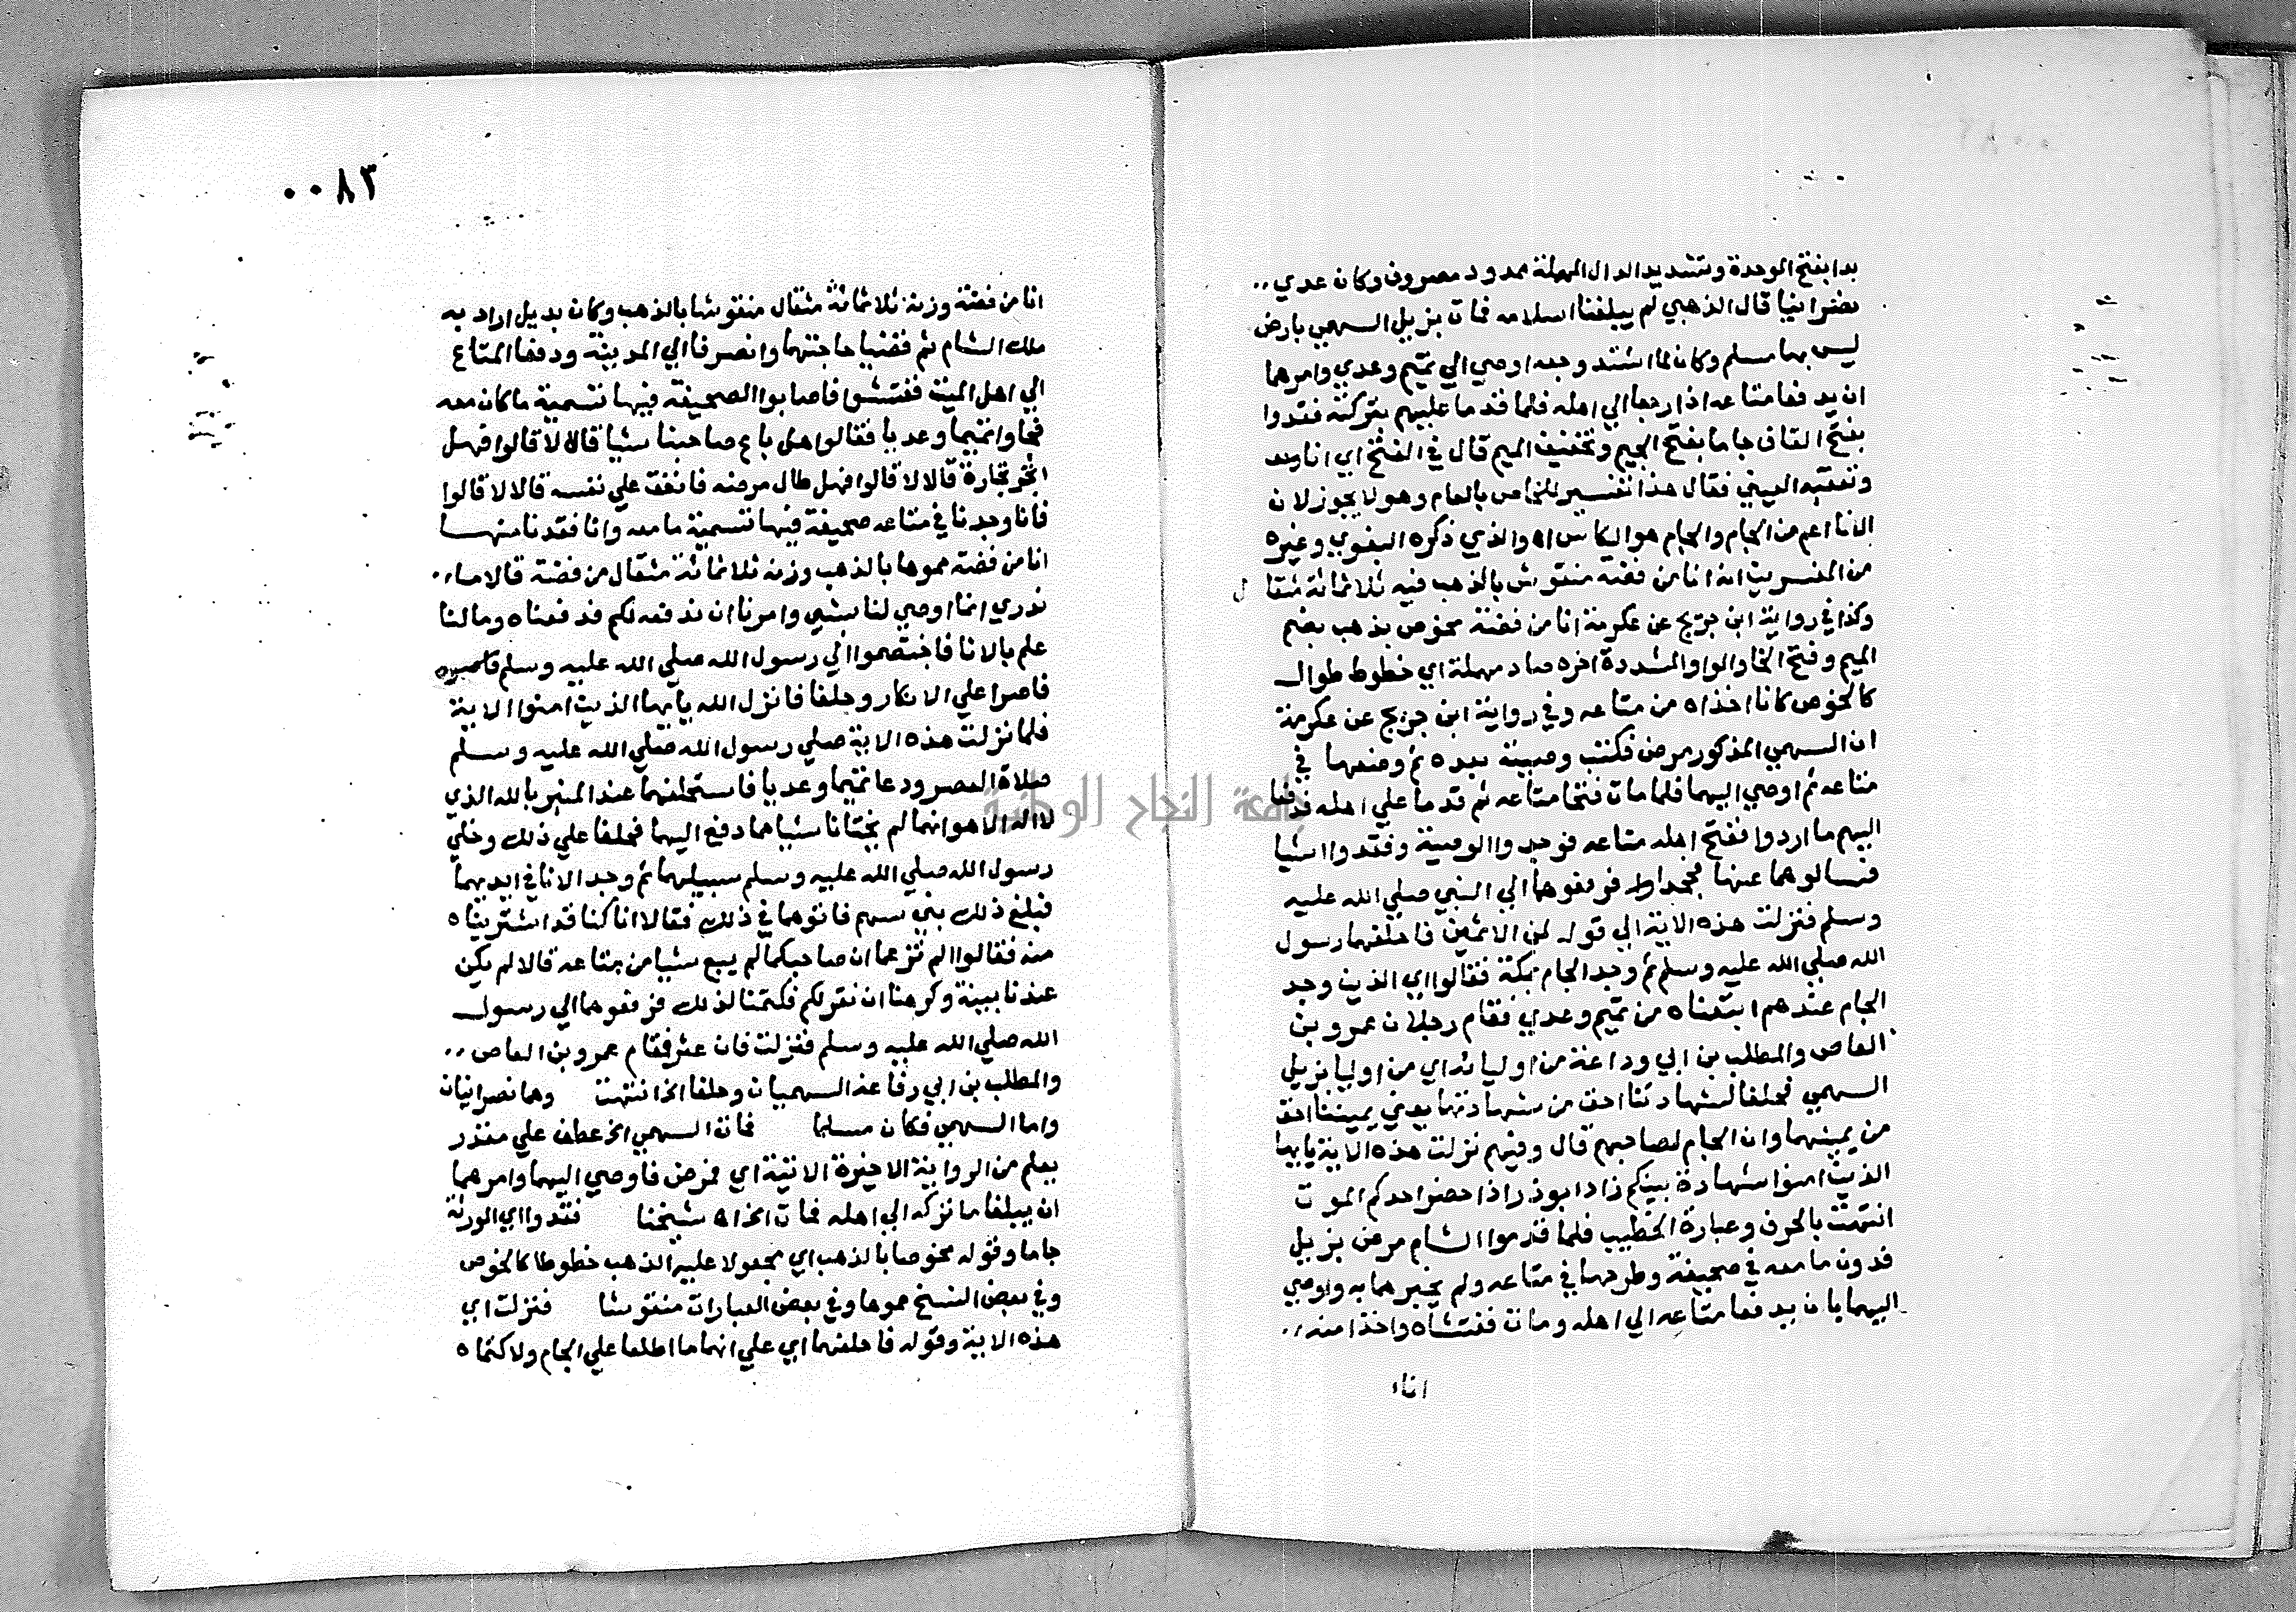 بدا بفتح الموحدة وتشديد الدال المهملة ممدود مصروف وكان عدي
نصرانيا قال الذهبي لم يبلغنا اسلامه فمات بزيل السهمي بارض
ليس بها مسلم وكان لما اشتد وجعه اوصي الي تميم وعدي وامرهما
ان يدفعا متاعه اذا رجعا الي اهله فلما قدما عليهم بتركته فقدوا
بفتح القاف جاما بفتح الجيم وتخفيف الميم قال في الفتح اي انا
وتعقبه العيني فقال هذا تفسير للخاص بالعام وهو لا يجوز لان
الانا اعم من الجام والجام هو الكاس اه والذي ذكره البغوي وغيره
من المفسرين انه انا من فضة منقوش بالذهب فيه ثلاثمائة مثقال
وكذا في رواية ابن جريج عن عكرمة انا من فضة مخوص بذهب بضم
الميم وفتح الخا والواو المشددة اخره صاد مهملة اي خطوط طوال
كالخوص كانا اخذاه من متاعه وفي رواية ابن جريج عن عكرمة
ان السهمي المذكور مرض فكتب وصيته بيده ثم وضعها في
متاعه ثم اوصي اليهما فلما مات فتحا متاعه ثم قدما علي اهله فدفعا
اليهم ما اردوا ففتح اهله متاعه فوجدوا الوصية وفقدوا اشيا
فسالوهما عنها فجحدا فرفعوهما الي النبي صلي الله عليه
وسلم فنزلت هذه الاية الي قوله لمن الاثمين فاحلفهما رسول
الله صلي الله عليه وسلم ثم وجد الجام بمكة فقالوا اي الذين وجد
الجام عندهم ابتعناه من تميم وعدي فقام رجلان عمرو بن
العاص والمطلب بن ابي وداعة من اوليائه اي من اوليا بزيل
السهمي فحلفا لشهادتنا احق من شهادتهما يعني يميننا احق
من يمينهما وان الجام لصاحبهم قال وفيهم نزلت هذه الاية يايها
الذين امنوا شهادة بينكم زاد ابوذر اذا حضر احدكم الموت
انتهت بالحرف وعبارة الخطيب فلما قدموا الشام مرض بزيل
فدون ما معه في صحيفة وطرحها في متاعه ولم يخبرهما به واوصي
اليهما بان يدفعا متاعه الي اهله ومات ففتشاه واخذا منه
اناء
٠٠٨٣
انا من فضة وزنه ثلاثمائة مثقال منقوشا بالذهب وكان بديل اراد به
ملك الشام ثم قضيا حاجتهما وانصرفا الي المدينة ودفعا المتاع
الي اهل الميت ففتشوا فاصابوا الصحيفة فيها تسمية ما كان معه
فجاوا تميما وعديا فقالوا هل باع صاحبنا شيا قالا لا قالوا فهل
اتجر تجارة قالا لا قالوا فهل طال مرضه فانفق علي نفسه قالا لا قالوا
فانا وجدنا في متاعه صحيفة فيها تسمية ما معه وانا فقدنا منها
انا من فضة مموها بالذهب وزنه ثلاثمائة مثقال من فضة قالا ما
ندري انما اوصي لنا بشيي وامرنا ان ندفعه لكم فدفعناه وما لنا
علم بالانا فاختصموا الي رسول الله صلي الله عليه وسلم
فاصرا علي الانكار وحلفا فانزل الله يايها الذين امنوا الاية
فلما نزلت هذه الاية صلي رسول الله صلي الله عليه وسلم
صلاة العصر ودعا تميما وعديا فاستحلفهما عند المنبر بالله الذي
لا اله الا هو انهما لم يختانا شيا مما دفع اليهما فحلفا علي ذلك وخلي
رسول الله صلي الله عليه وسلم سبيلهما ثم وجد الانا في ايديهما
فبلغ ذلك بني سهم فاتوهما في ذلك فقالا انا كنا قد اشتريناه
منه فقالوا الم تزعما ان صاحبكما لم يبع شيا من متاعه قالا لم يكن
عندنا بينة وكرهنا ان نقر لكم فكتمنا لذلك فرفعوهما الي رسول
الله صلي الله عليه وسلم فنزلت فان عثر فقام عمرو بن العاص
والمطلب بن ابي رفاعه السهميان وحلفا الخ انتهت وهما نصرانيان
واما السهمي فكان مسلما فمات السهمي الخ عطف علي مقدر
يعلم من الرواية الاخيرة الاتية اي فمرض فاوصي اليهما وامرهما
ان يبلغا ما تركه الي اهله فمات الخ اه شيخنا فقدوا اي الورثة
جاما وقوله مخوصا بالذهب اي مجعولا عليه الذهب خطوطا كالخوص
وفي بعض النسخ مموها وفي بعض العبارات منقوشا فنزلت اي
هذه الاية وقوله فاحلفهما اي علي انهما ما اطلعا علي الجام ولا كتماه
جامعة النجاح الوطنية